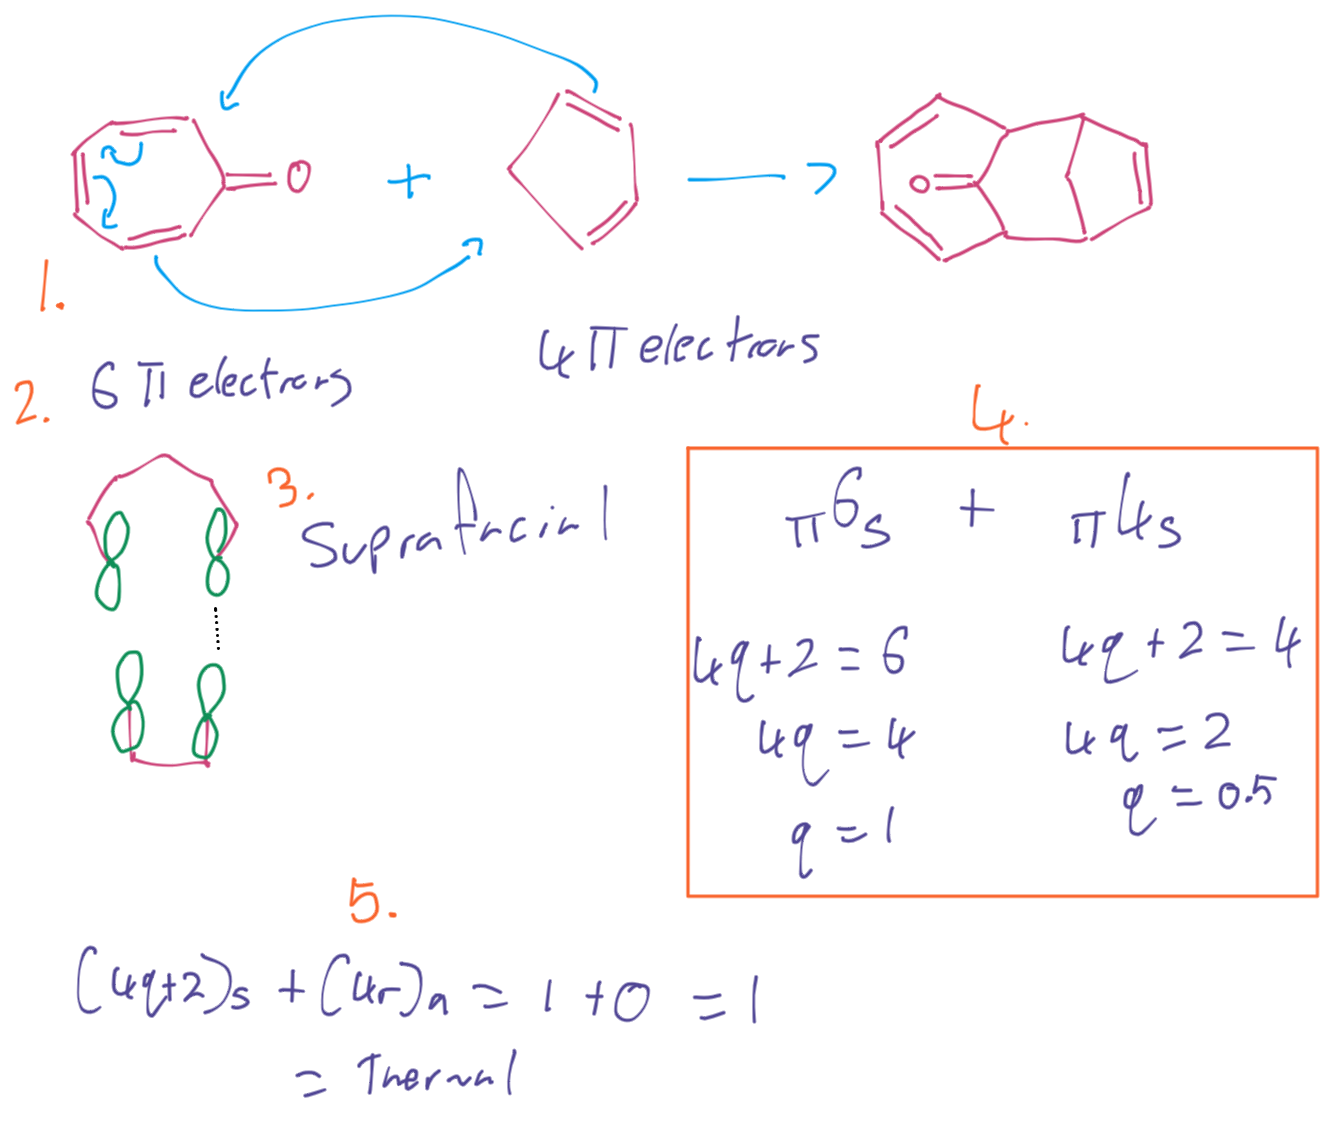 O + O
1.
2. 6 π electrons 4 π electrons
3. Suprafacial
4.
π6s + π4s
4q+2=6 4q+2=4
4q=4 4q=2
q=1 q=0.5
5.
(4q+2)s + (4r)a = 1 + 0 = 1
= Thermal